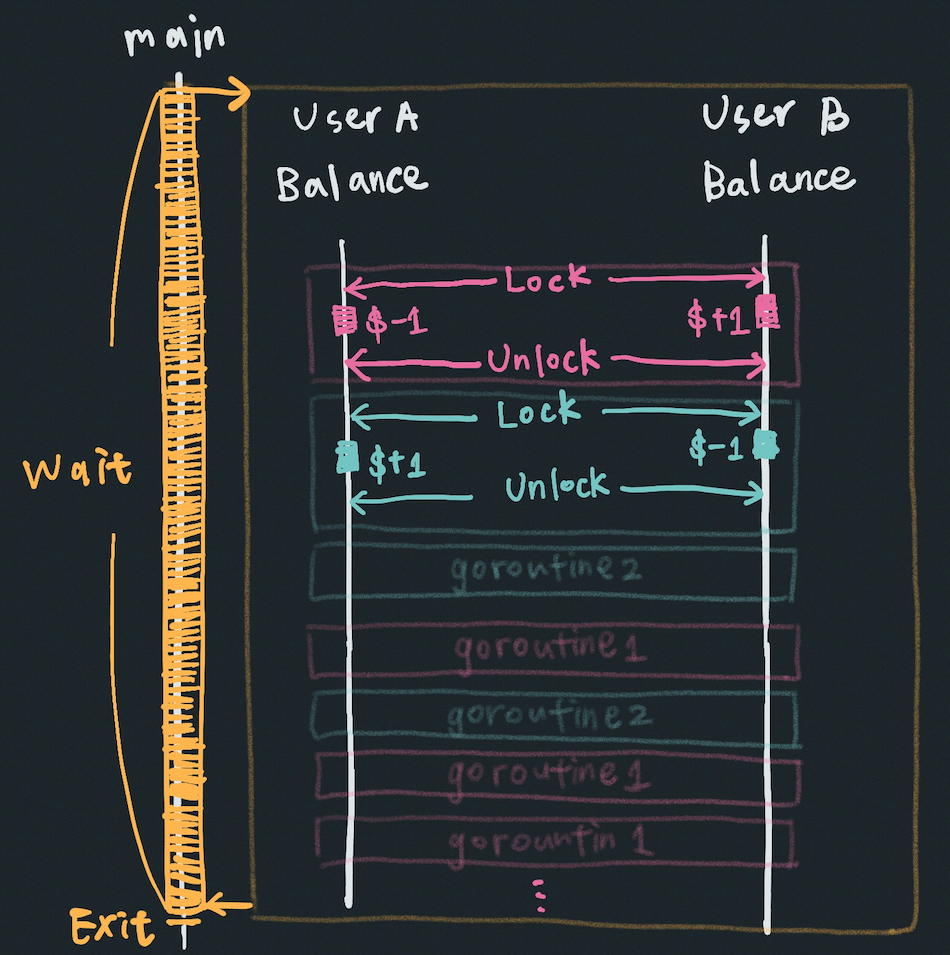 main
User A
Balance
User B
Balance
Lock
$-1
$+1
Unlock
Lock
$+1
$-1
Unlock
Wait
goroutine 2
goroutine 1
goroutine 2
goroutine 1
gorountin 1
Exit